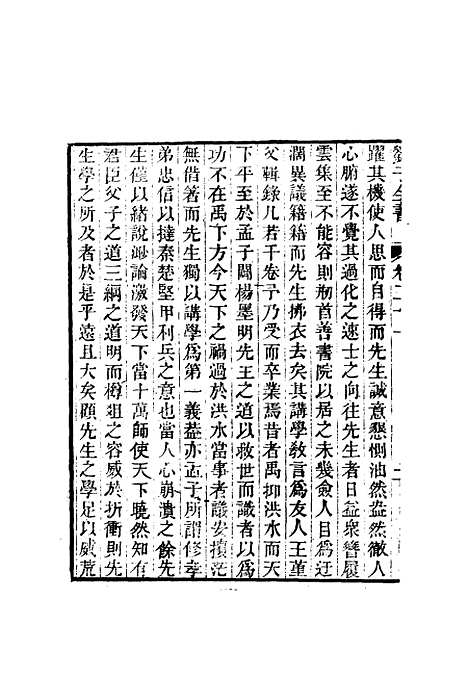 躍其機使人思而自得而先生誠意懇惻油然盎然徹人
心腑遂不覺其過化之速士之向往先生者日益衆簪履
雲集至不能容則剏首善書院以居之未幾僉人目爲迂
濶異議籍籍而先生拂衣去矣其講學教言爲友人王堇
父輯錄凡若干卷予乃受而卒業焉昔者禹抑洪水而天
下平至於孟子闢楊墨明先王之道以救世而識者以為
功不在禹下方今天下之禍過於洪水當事者議安攘茫
無借著而先生獨以講學爲第一義葢亦孟子所謂修孝
弟忠信以撻秦楚堅甲利兵之意也當人心崩潰之餘先
生僅以緒說渺論激發天下當十萬師使天下曉然知有
君臣父子之道三綱之道明而樽俎之容威於折衝則先
生學之所及者於是乎遠且大矣頋先生之學足以威荒